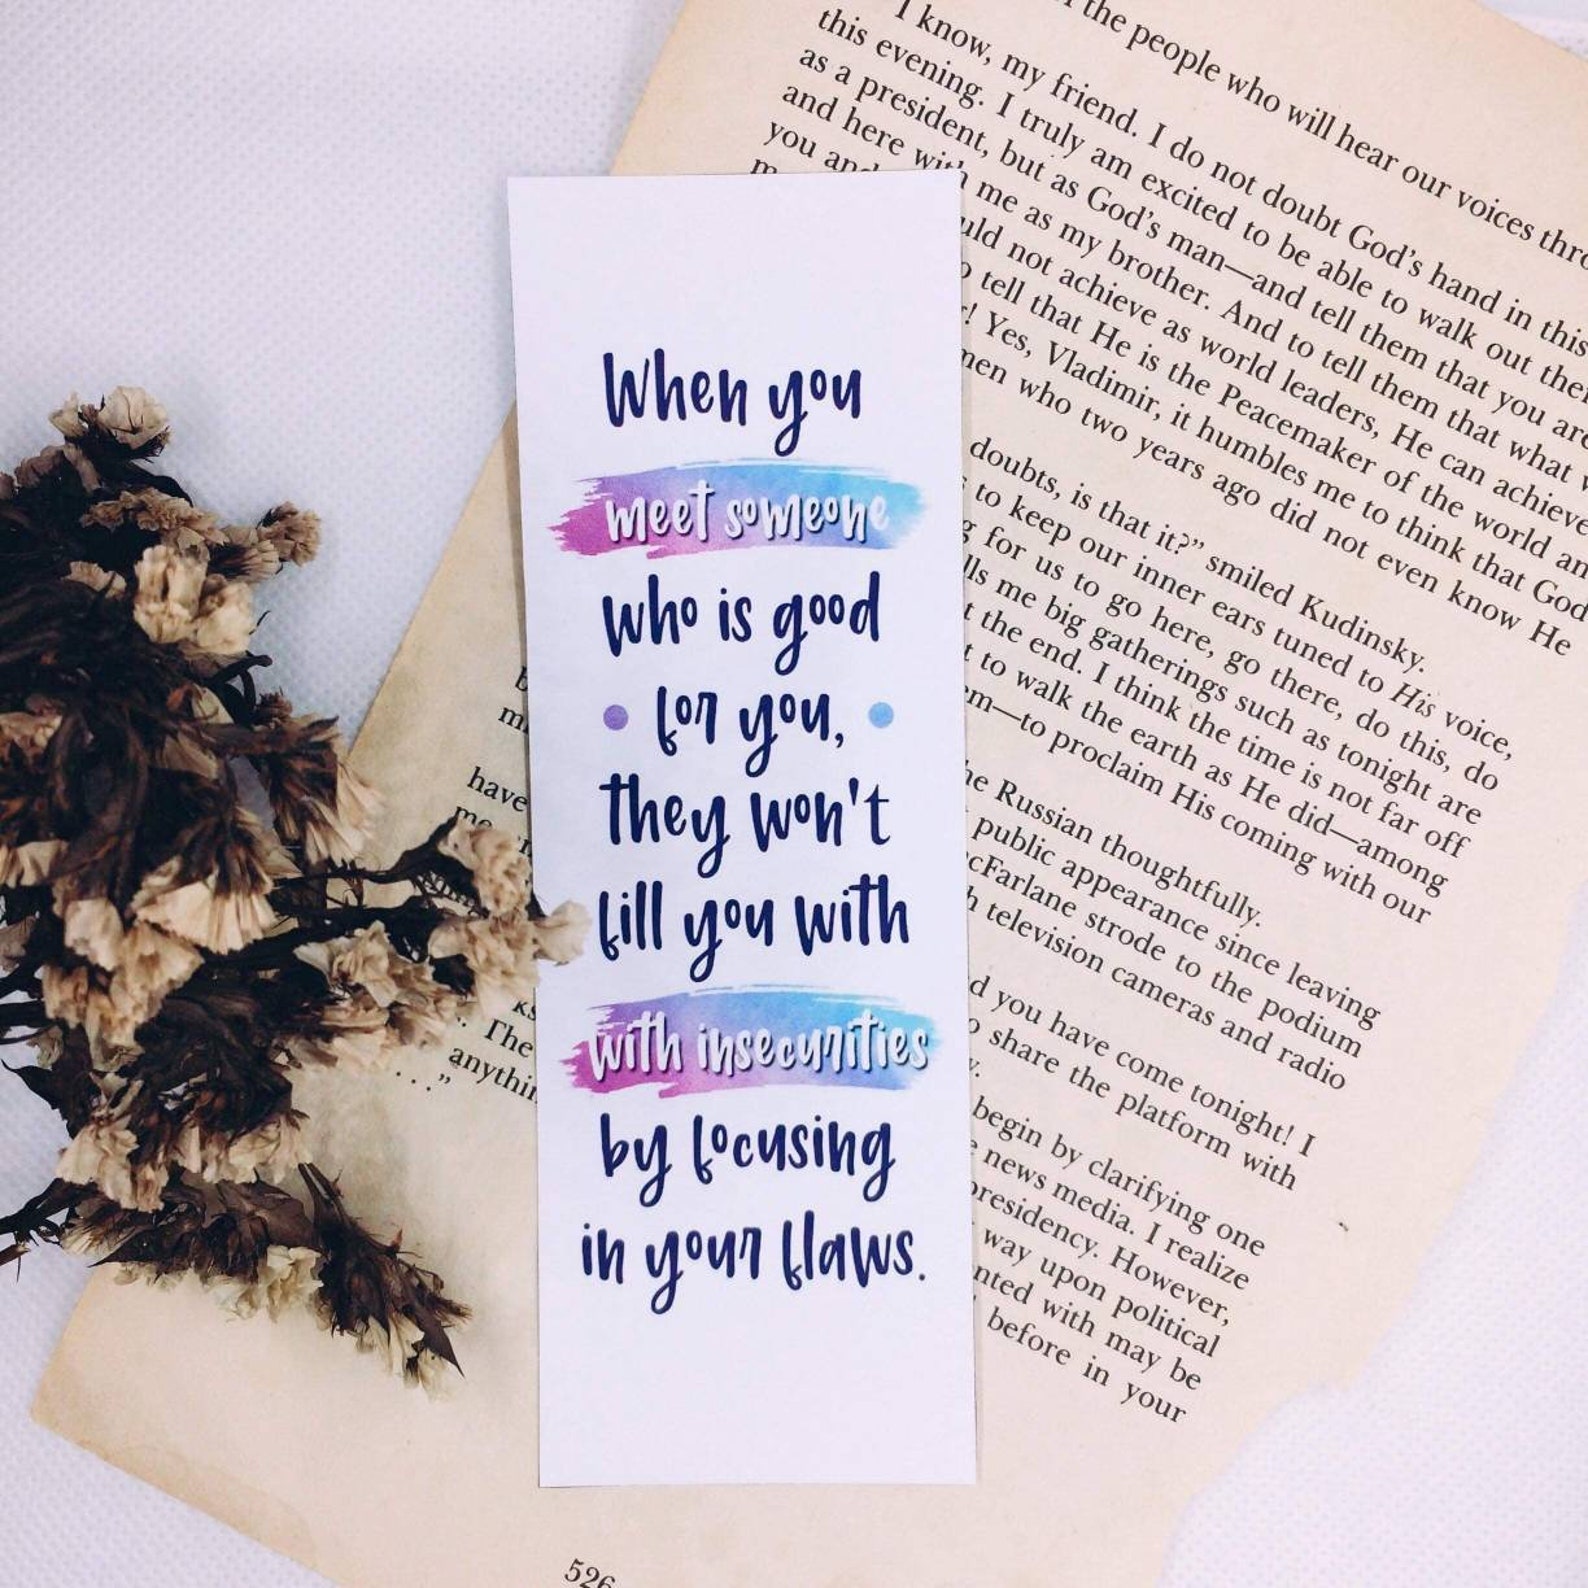 When you
meet someone
who is good
for you,
they won't
fill you with
with insecurities
by focusing
in your flaws.
the people who will hear our voices thro
I know, my friend. I do not doubt God's hand in this
this evening. I truly am excited to be able to walk out
as a president, but as God's man—and tell them that you are
and here with me as my brother. And to tell them that what
you and
uld not achieve as world leaders, He can achieve
tell that He is the Peacemaker of the world an
! Yes, Vladimir, it humbles me to think that God
men who two years ago did not even know He
doubts, is that it?" smiled Kudinsky.
to keep our inner ears tuned to His voice,
g for us to go here, go there, do this, do
lls me big gatherings such as tonight are
t the end. I think the time is not far off
t to walk the earth as He did—among
em—to proclaim His coming with our
he Russian thoughtfully.
public appearance since leaving
cFarlane strode to the podium
h television cameras and radio
d you have come tonight! I
o share the platform with
y.
begin by clarifying one
e news media. I realize
presidency. However,
way upon political
nted with may be
before in your
have
me
ks
.. The
anythin
. . ."
526